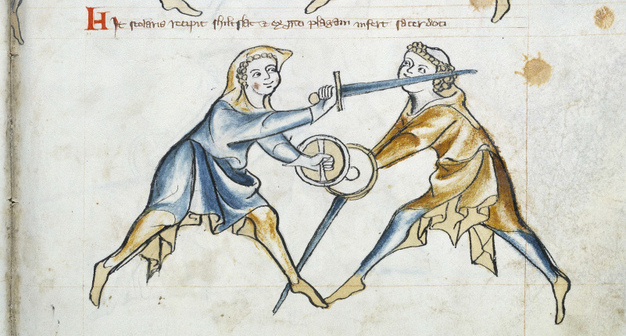 Hic scolaris recipit shiltslac plagam infert sacerdoti